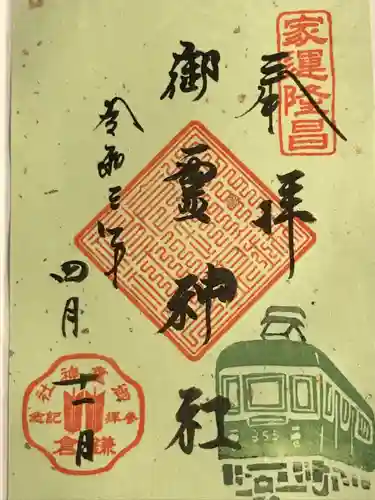 家運隆昌
奉拝
御霊神社
令和三年
四月
十一日
御霊神社
参拝
記念
鎌倉
353